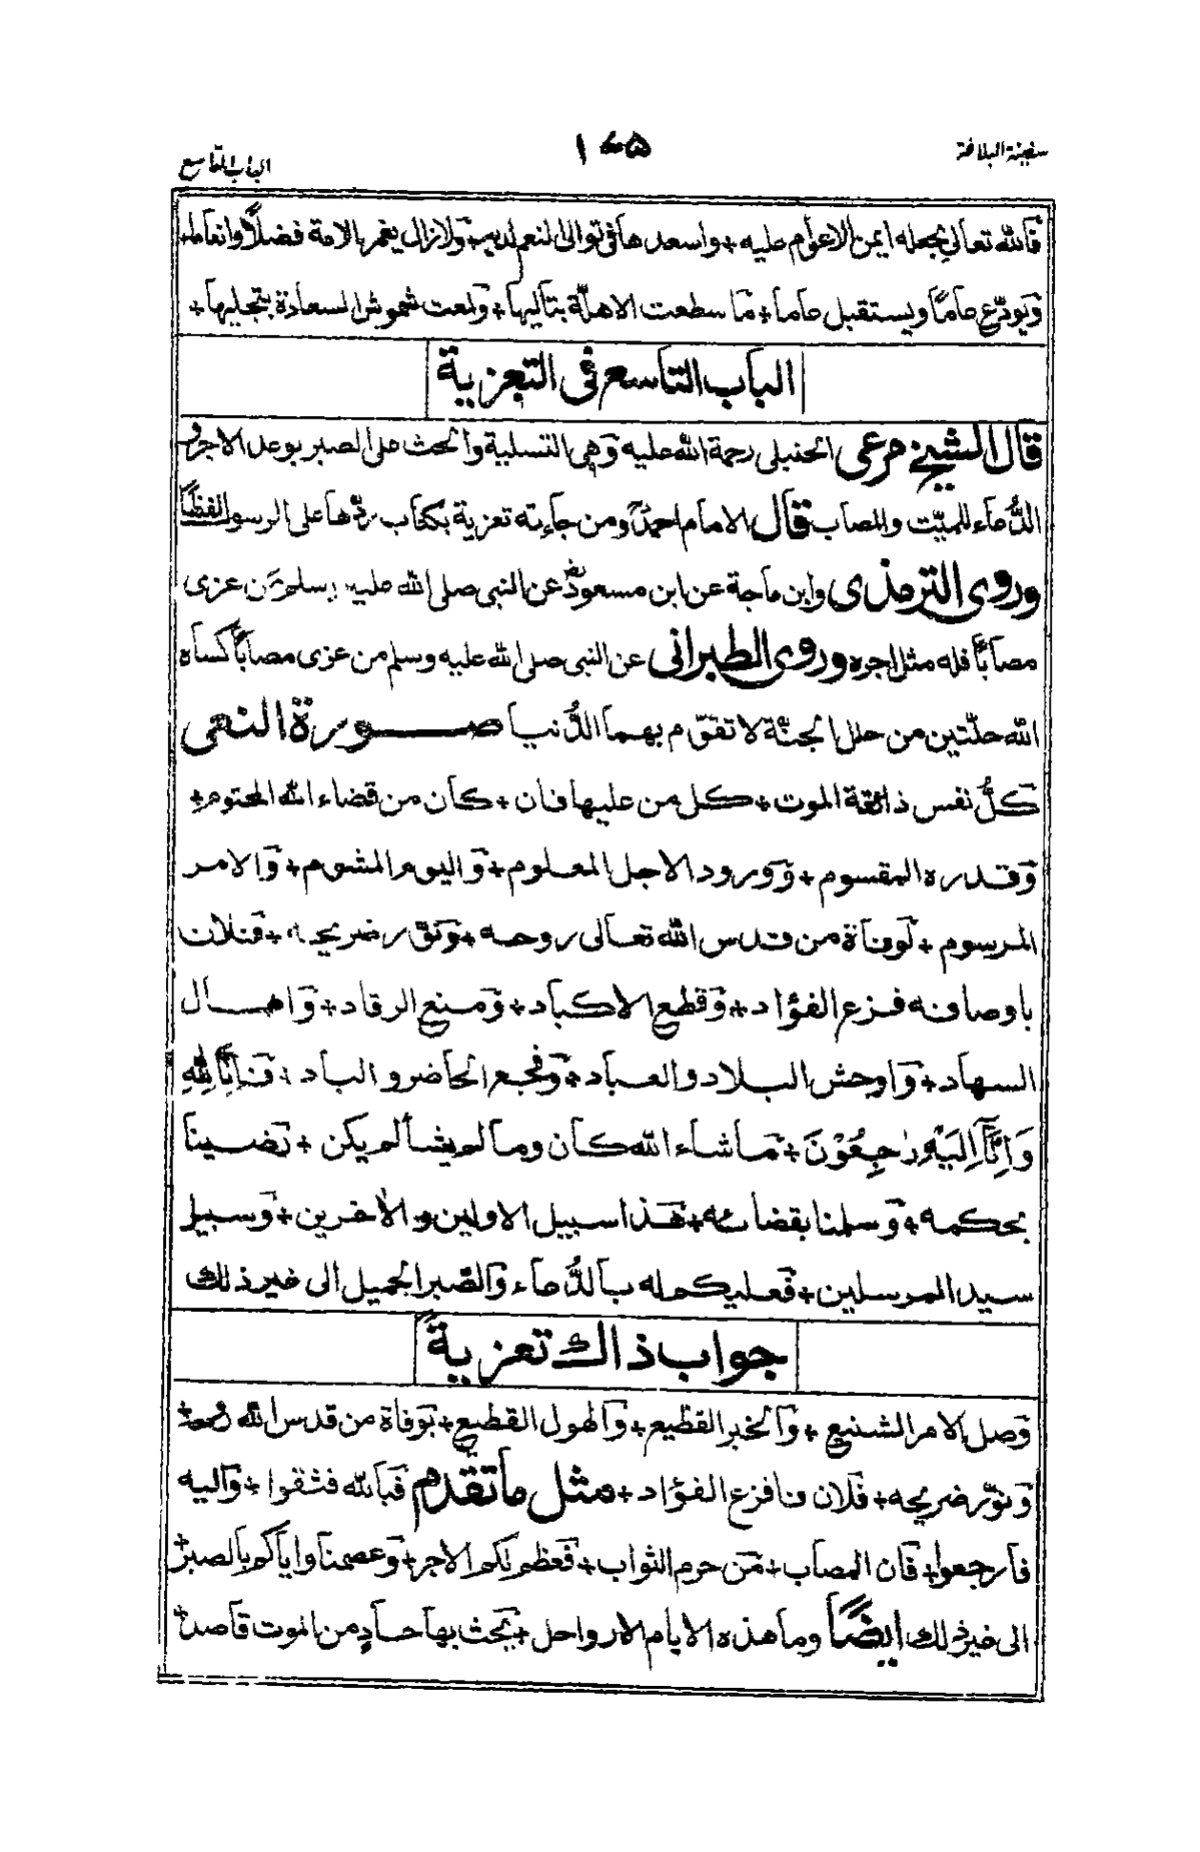 سفينة البلاغة
١٧٥
الباب التاسع
فالله تعالى يجعله ايمن الاعوام عليه + واسعدها فى توالى النعم لديه + ولازال يغمر بالامة فضلاً وانعاما +
ويودّع عاماً ويستقبل عاما + ما سطعت الاهلّة بتاليها + ولمعت شموش السعادة بتجليها +
الباب التاسع فى التعزية
قال الشيخ مرعى الحنبلى رحمة الله عليه وهى التسلية والحث على الصبر بوعد الاجر و
الدُّعاء للميّت والمصاب قال الامام احمد ومن جاءته تعزية بكتاب ردّها على الرسول لفظاً
وروى الترمذى وابن ماجة عن ابن مسعودؓ عن النبى صلى الله عليه وسلم من عزى
مصاباً فله مثل اجره وروى الطبرانى عن النبى صلى الله عليه وسلم من عزى مصاباً كساه
الله حلّتين من حلل الجنّة لا تقوّم بهما الدُّنيا صورة النعى
كلُّ نفس ذائقة الموت + كل من عليها فان + كان من قضاء الله المحتوم +
وقدره المقسوم + وورود الاجل المعلوم + واليوم المشوم + والامر
المرسوم + لوفاة من قدس الله تعالى روحه + ونوّر ضريحه + فلان
باوصافه فزع الفؤاد + وقطع الاكباد + ومنع الرقاد + واهمال
السهاد + واوحش البلاد والعباد + وفجع الحاضر والباد + فانا لله
وَاِنَّآ اِلَيْهِ رٰجِعُوْنَ + ما شاء الله كان وما لم يشأ لم يكن + رضينا
بحكمه + وسلمنا بقضائه + هذا سبيل الاولين والاخرين + وسبيل
سيد المرسلين + فعليكم له بالدُّعاء والصّبر الجميل الى غير ذلك
جواب ذاك تعزيةً
وصل الامر الشنيع + والخبر الفظيع + والهول القطيع + بوفاة من قدس الله روحه +
ونوّر ضريحه + فلان فافزع الفؤاد + مثل ما تقدم فبالله فثقوا + واليه
فارجعوا + فان المصاب + من حرم الثواب + فعظم لكم الاجر + وعصمنا واياكم بالصبر +
الى غير ذلك ايضاً وما هذه الايام الا رواحل + يحث بها حادٍ من الموت قاصد +